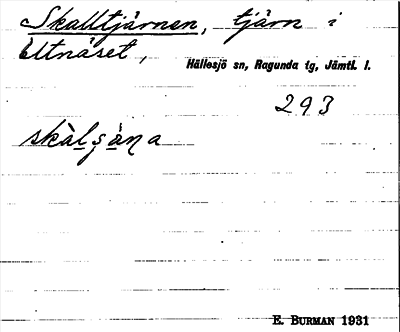 Skalltjärnen, tjärn i
Ottnäset,
Hällesjö sn, Ragunda tg, Jämtl. l.
293
skàlʂäṇa
E. BURMAN 1931